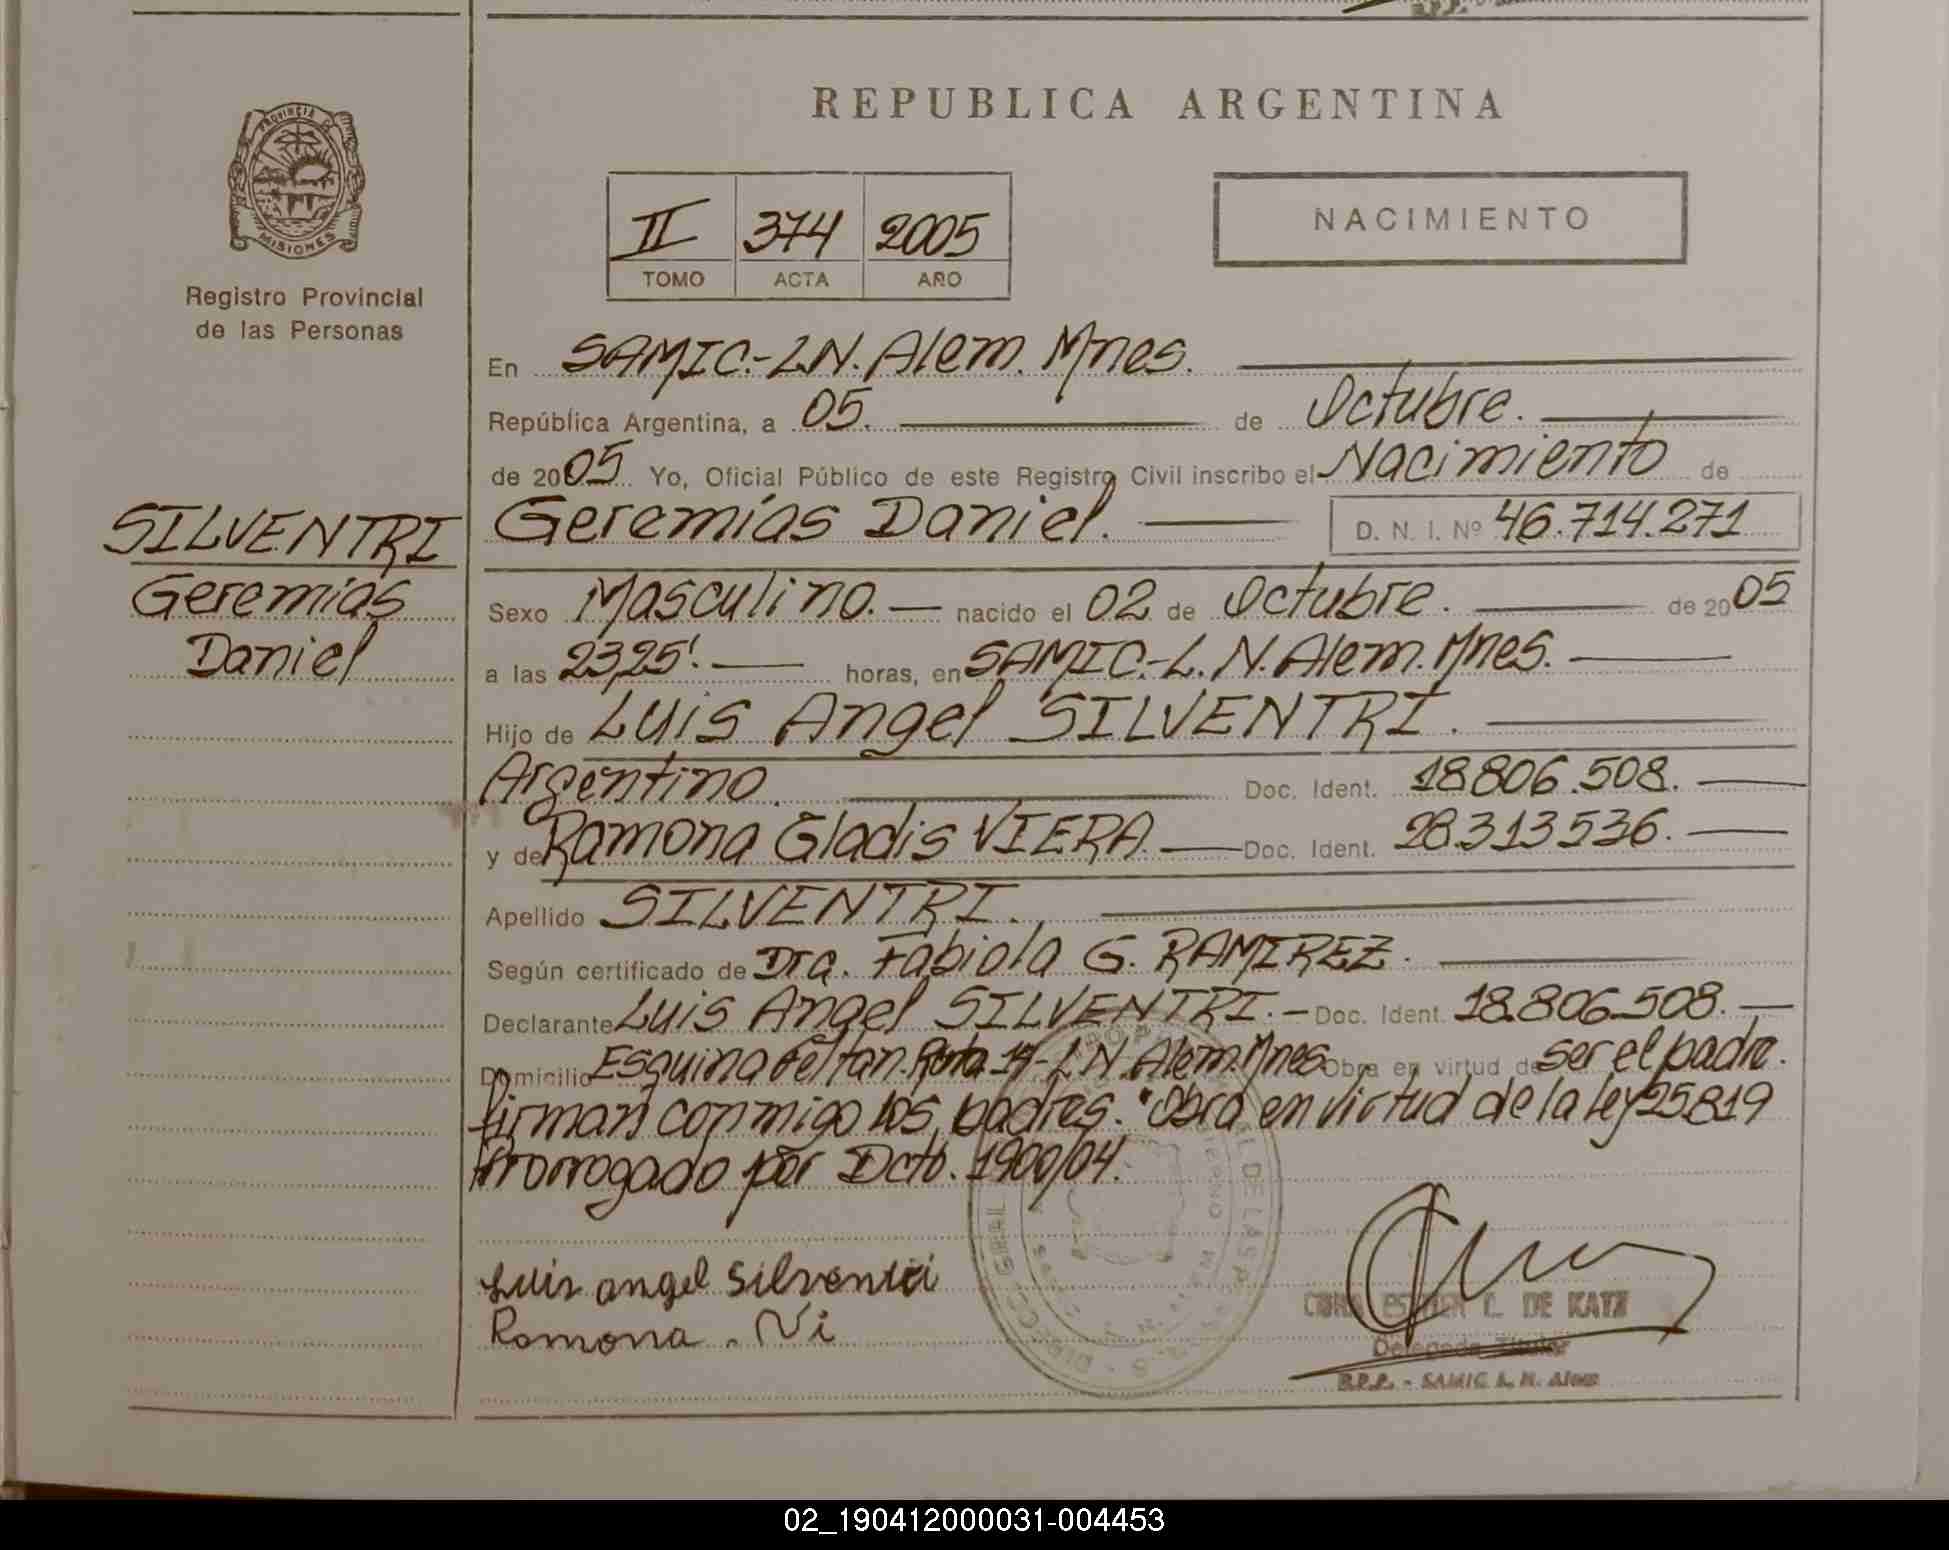 REPUBLICA ARGENTINA
PROVINCIA DE
MISIONES
Registro Provincial
de las Personas
II 374 2005
TOMO ACTA AÑO
NACIMIENTO
En SAMIC.-L.N. Alem. Mnes.
República Argentina, a 05. de Octubre.
de 2005. Yo, Oficial Público de este Registro Civil inscribo el Nacimiento de
SILVENTRI
Geremías
Daniel
Geremías Daniel. D. N. I. Nº 46.714.271
Sexo Masculino. nacido el 02 de Octubre. de 2005
a las 23,25'. horas, en SAMIC.-L.N. Alem. Mnes.
Hijo de Luis Angel SILVENTRI.
Argentino. Doc. Ident. 18.806.508.
y de Ramona Gladis VIERA. Doc. Ident. 28.313.536.
Apellido SILVENTRI.
Según certificado de Dra. Fabiola G. RAMIREZ.
Declarante Luis Angel SILVENTRI. Doc. Ident. 18.806.508.
Domicilio Esquina Feltan. Ruta 14-L N. Alem. Mnes Obra en virtud de ser el padre.
firman conmigo los padres. "Obra en virtud de la ley 25819
Prorrogado por Dcto. 1900/04.
Luis angel Silventri
Ramona . Vi
DE KATZ
Delegada Titular
R.P.P. - SAMIC L. N. Alem
02_190412000031-004453